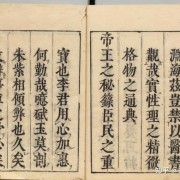 淵海茲豈禁以醫書
覯哉實性理之精微
格物之通典
帝王之秘籙臣民之重
寶也李君用心加惠
何勤哉噫碔玉莫剖
朱紫相傾弊也久矣